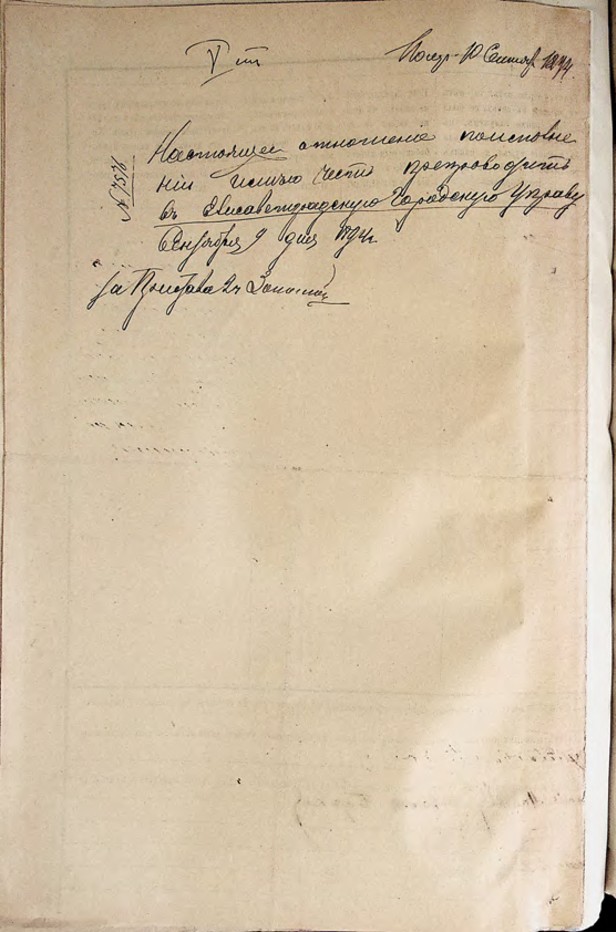 V ст
Получ. 10 Сентяб 1874
№ 7576
Настоящее отношение по исполне
нии частью препроводить
въ Елисаветградскую Городскую Управу
Сентября 9 дня
за Пристава 2 ч